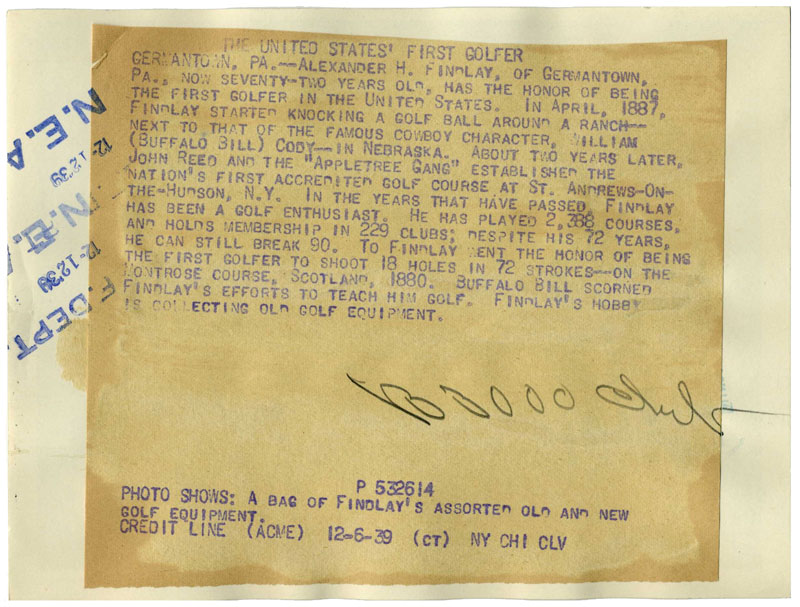 THE UNITED STATES' FIRST GOLFER
GERMANTOWN, PA.--ALEXANDER H. FINDLAY, OF GERMANTOWN,
PA., NOW SEVENTY-TWO YEARS OLD, HAS THE HONOR OF BEING
THE FIRST GOLFER IN THE UNITED STATES. IN APRIL, 1887,
FINDLAY STARTED KNOCKING A GOLF BALL AROUND A RANCH--
NEXT TO THAT OF THE FAMOUS COWBOY CHARACTER, WILLIAM
(BUFFALO BILL) CODY--IN NEBRASKA. ABOUT TWO YEARS LATER,
JOHN REED AND THE "APPLETREE GANG" ESTABLISHED THE
NATION'S FIRST ACCREDITED GOLF COURSE AT ST. ANDREWS-ON-
THE-HUDSON, N.Y. IN THE YEARS THAT HAVE PASSED, FINDLAY
HAS BEEN A GOLF ENTHUSIAST. HE HAS PLAYED 2,388 COURSES,
AND HOLDS MEMBERSHIP IN 229 CLUBS; DESPITE HIS 72 YEARS,
HE CAN STILL BREAK 90. TO FINDLAY WENT THE HONOR OF BEING
THE FIRST GOLFER TO SHOOT 18 HOLES IN 72 STROKES--ON THE
MONTROSE COURSE, SCOTLAND, 1880. BUFFALO BILL SCORNED
FINDLAY'S EFFORTS TO TEACH HIM GOLF. FINDLAY'S HOBBY
IS COLLECTING OLD GOLF EQUIPMENT.
P 532614
PHOTO SHOWS: A BAG OF FINDLAY'S ASSORTED OLD AND NEW
GOLF EQUIPMENT.
CREDIT LINE (ACME) 12-6-39 (CT) NY CHI CLV
N.E.A
12-12-39
N.E.A
12-12-39
F. DEPT.